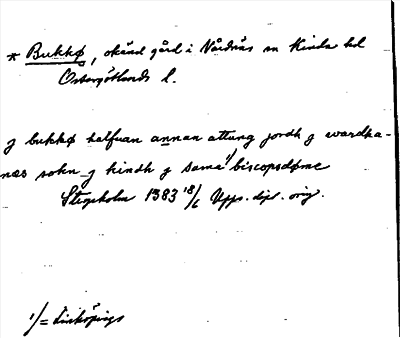 * Bukkø, okänd gård i Vårdnäs sn Kinda hd
Östergötlands l.
j bukkø halfuan annan attung jordh j wardha-
næs sokn j kindh j sama 1/ biscopsdøme
Stegeholm 1383 18/6 Upps. dipl. orig.
1/ = Linköpings